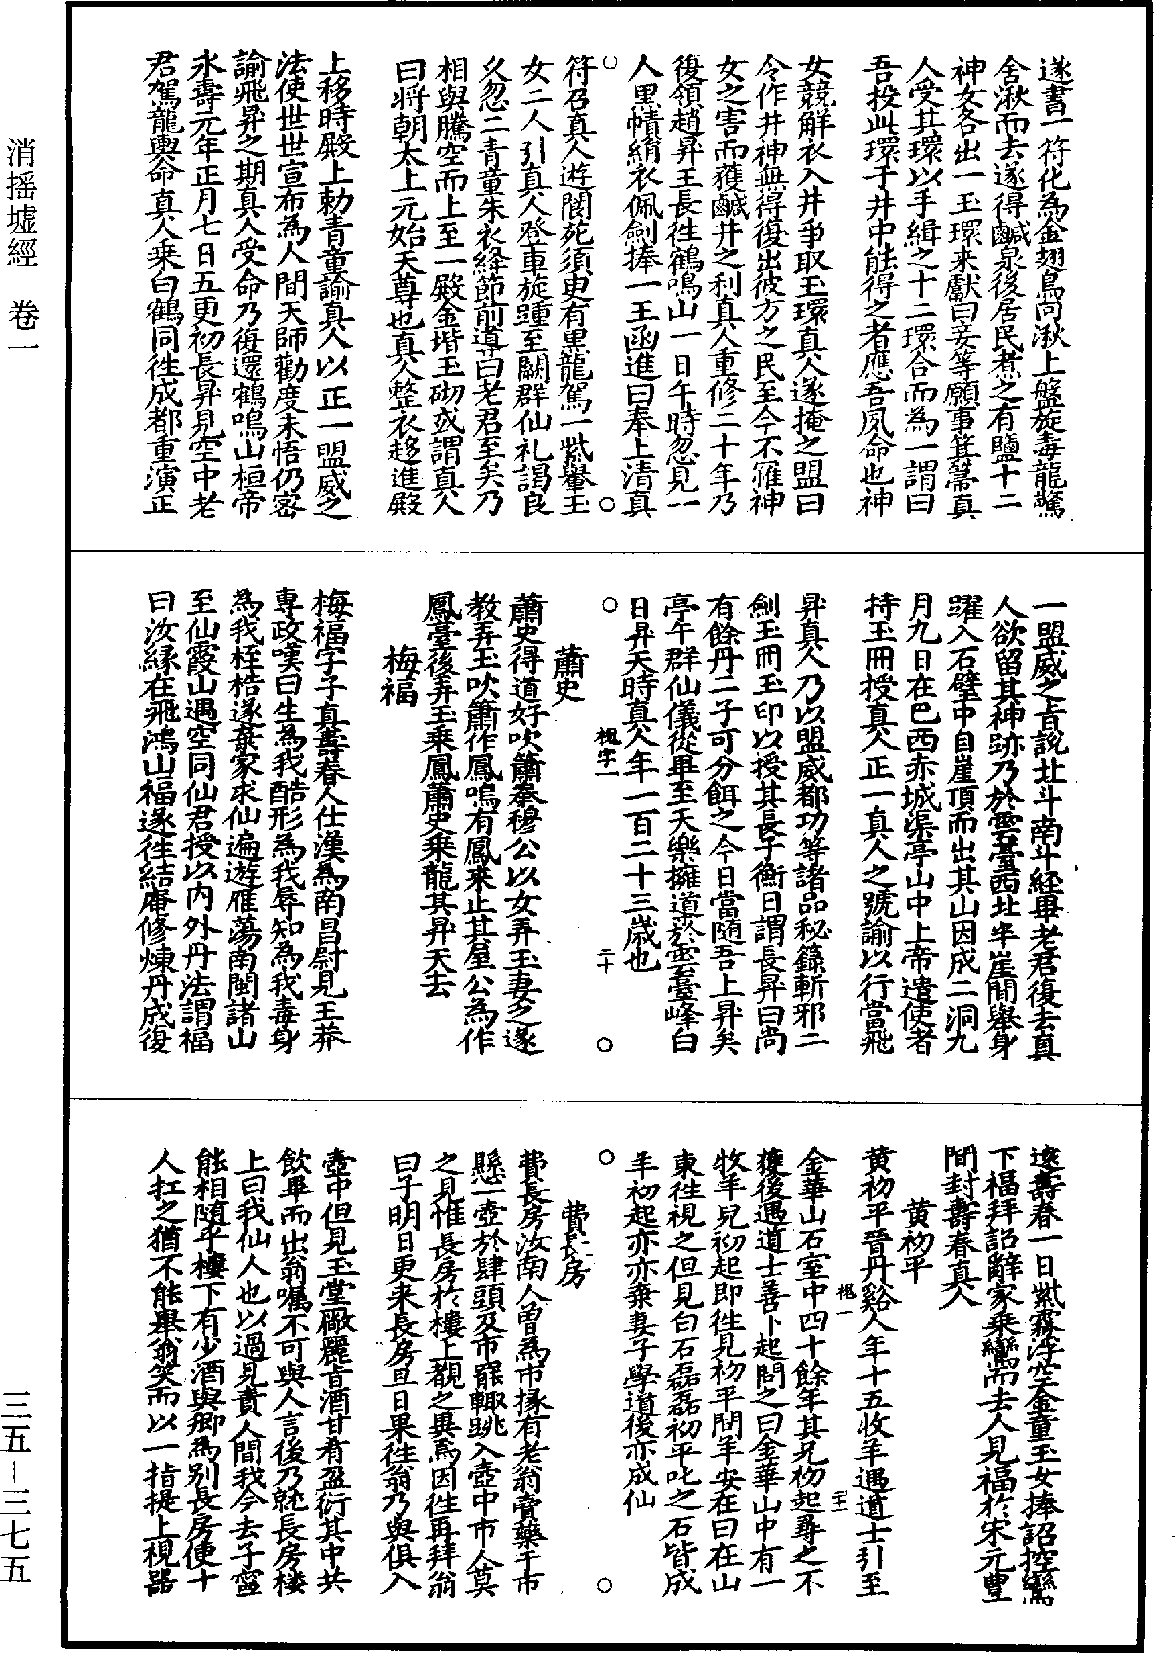 遂書一符化為金翅鳥向湫上盤旋毒龍驚
舍湫而去遂得鹹泉後居民煮之有鹽十二
神女各出一玉環来獻曰妾等願事箕箒真
人受其環以手緝之十二環合而為一謂曰
吾投此環于井中能得之者應吾夙命也神
女競解衣入井爭取玉環真人遂掩之盟曰
令作井神無得復出彼方之民至今不罹神
女之害而獲鹹井之利真人重修二十年乃
復領趙昇王長往鶴鳴山一日午時忽見一
人黒幘絹衣佩劍捧一玉函進曰奉上清真
符召真人遊閬苑須臾有黒龍駕一紫轝玉
女二人引真人登車旋踵至闕群仙礼謁良
久忽二青童朱衣絳節前導曰老君至矣乃
相與騰空而上至一殿金堦玉砌或謂真人
曰将朝太上元始天尊也真人整衣趍進殿
上移時殿上勅青童諭真人以正一盟威之
法使世世宣布為人間天師勸度未悟仍密
諭飛昇之期真人受命乃復還鶴鳴山桓帝
永壽元年正月七日五更初長昇見空中老
君駕龍輿命真人乗白鶴同往成都重演正
一盟威之旨說北斗南斗経畢老君復去真
人欲留其神跡乃於雲臺西北半崖間舉身
躍入石壁中自崖頂而出其山因成二洞九
月九日在巴西赤城渠亭山中上帝遣使者
持玉冊授真人正一真人之號諭以行當飛
昇真人乃以盟威都功等諸品秘籙斬邪二
劍玉冊玉印以授其長子衡曰謂長昇曰尚
有餘丹二子可分餌之今日當随吾上昇矣
亭午群仙儀從畢至天樂擁導於雲臺峰白
日昇天時真人年一百二十三歳也
槐字一
二十
蕭史
蕭史得道好吹簫秦穆公以女弄玉妻之遂
教弄玉吹簫作鳳鳴有鳳来止其屋公為作
鳳臺後弄玉乗鳳蕭史乗龍其昇天去
梅福
梅福字子真壽春人仕漢為南昌尉見王莽
專政嘆曰生為我酷形為我辱知為我毒身
為我桎梏遂棄家求仙遍遊雁蕩南閩諸山
至仙霞山遇空同仙君授以内外丹法謂福
曰汝縁在飛鴻山福遂往結庵修煉丹成復
還壽春一日紫霧浮空金童玉女捧詔控鸞
下福拜詔辭家乗鸞而去人見福於宋元豐
間封壽春真人
黄初平
黄初平晉丹谿人年十五牧羊遇道士引至
金華山石室中四十餘年其兄初起尋之不
獲後遇道士善卜起問之曰金華山中有一
牧羊兒初起即往見初平問羊安在曰在山
東往視之但見白石磊磊初平叱之石皆成
羊初起亦亦棄妻子學道後亦成仙
槐一
費長房
費長房汝南人曽為市掾有老翁賣藥于市
懸一壺於肆頭及市罷輙跳入壺中市人莫
之見惟長房於樓上覩之異焉因往再拜翁
曰子明日更来長房旦日果往翁乃與俱入
壺中但見玉堂嚴麗旨酒甘肴盈衍其中共
飲畢而出翁囑不可與人言後乃就長房樓
上曰我仙人也以過見責人間我今去子寧
能相随乎樓下有少酒與卿為別長房使十
人扛之猶不能舉翁笑而以一指提上視器
消摇墟經　卷一
三五—三七五